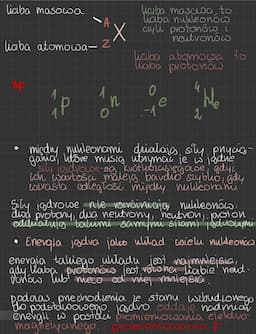 liczba masowa
A
X
Z
liczba atomowa
liczba masowa to
liczba nukleonów
czyli protonów i
neutronów
liczba atomowa to
liczba protonów
np
1 1 p
1 0 n
0 -1 e
4 2 He
• między nukleonami działają siły przyciągania, które muszą utrzymać je w jądrze
siły jądrowe są krótkozasięgowe, gdyż
ich wartości maleją bardzo szybko, gdy
wzrasta odległość między nukleonami
Siły jądrowe nie rozróżniają nukleonów.
dwa protony, dwa neutrony, neutron, proton
oddziałują takimi samymi siłami jądrowymi
• Energia jądra jako układ wielu nukleonów
energia takiego układu jest najmniejsza,
gdy liczba protonów jest równa liczbie neutronów lub nieco od niej mniejsza.
podczas przechodzenia ze stanu wzbudzonego
do podstawowego jądro oddaje nadmiar
energii w postaci promieniowania elektromagnetycznego - promieniowania γ